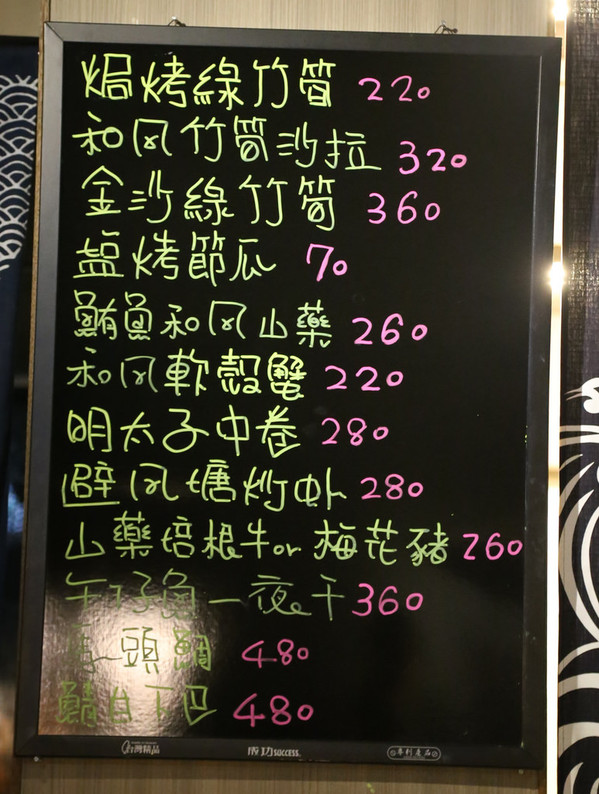 焗烤綠竹筍 220
和风竹筍沙拉 320
金沙綠竹筍 360
塩烤節瓜 70
鮪魚和风山藥 260
和风軟殼蟹 220
明太子中卷 280
避风塘炒中卜 280
山藥培根牛or梅花豬 260
午仔魚一夜干 360
馬頭鯛 480
鯖白下巴 480
台灣精品 成功 SUCCESS. 專利產品